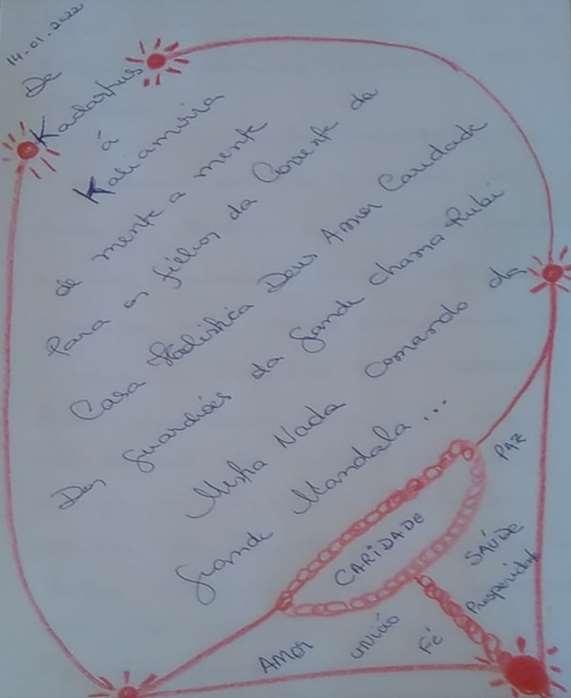 14-01-2022
De
Kadartus
á
Kaliamiria
de mente a mente
Para os filhos da Corrente da
Casa Holística Deus Amor Caridade
Dos Guardiões da Grande Chama Rubi
Mestra Nada Comando da
Grande Mandala...
CARIDADE
PAZ
SAÚDE
Prosperidade
Fé
UNIÃO
AMOR